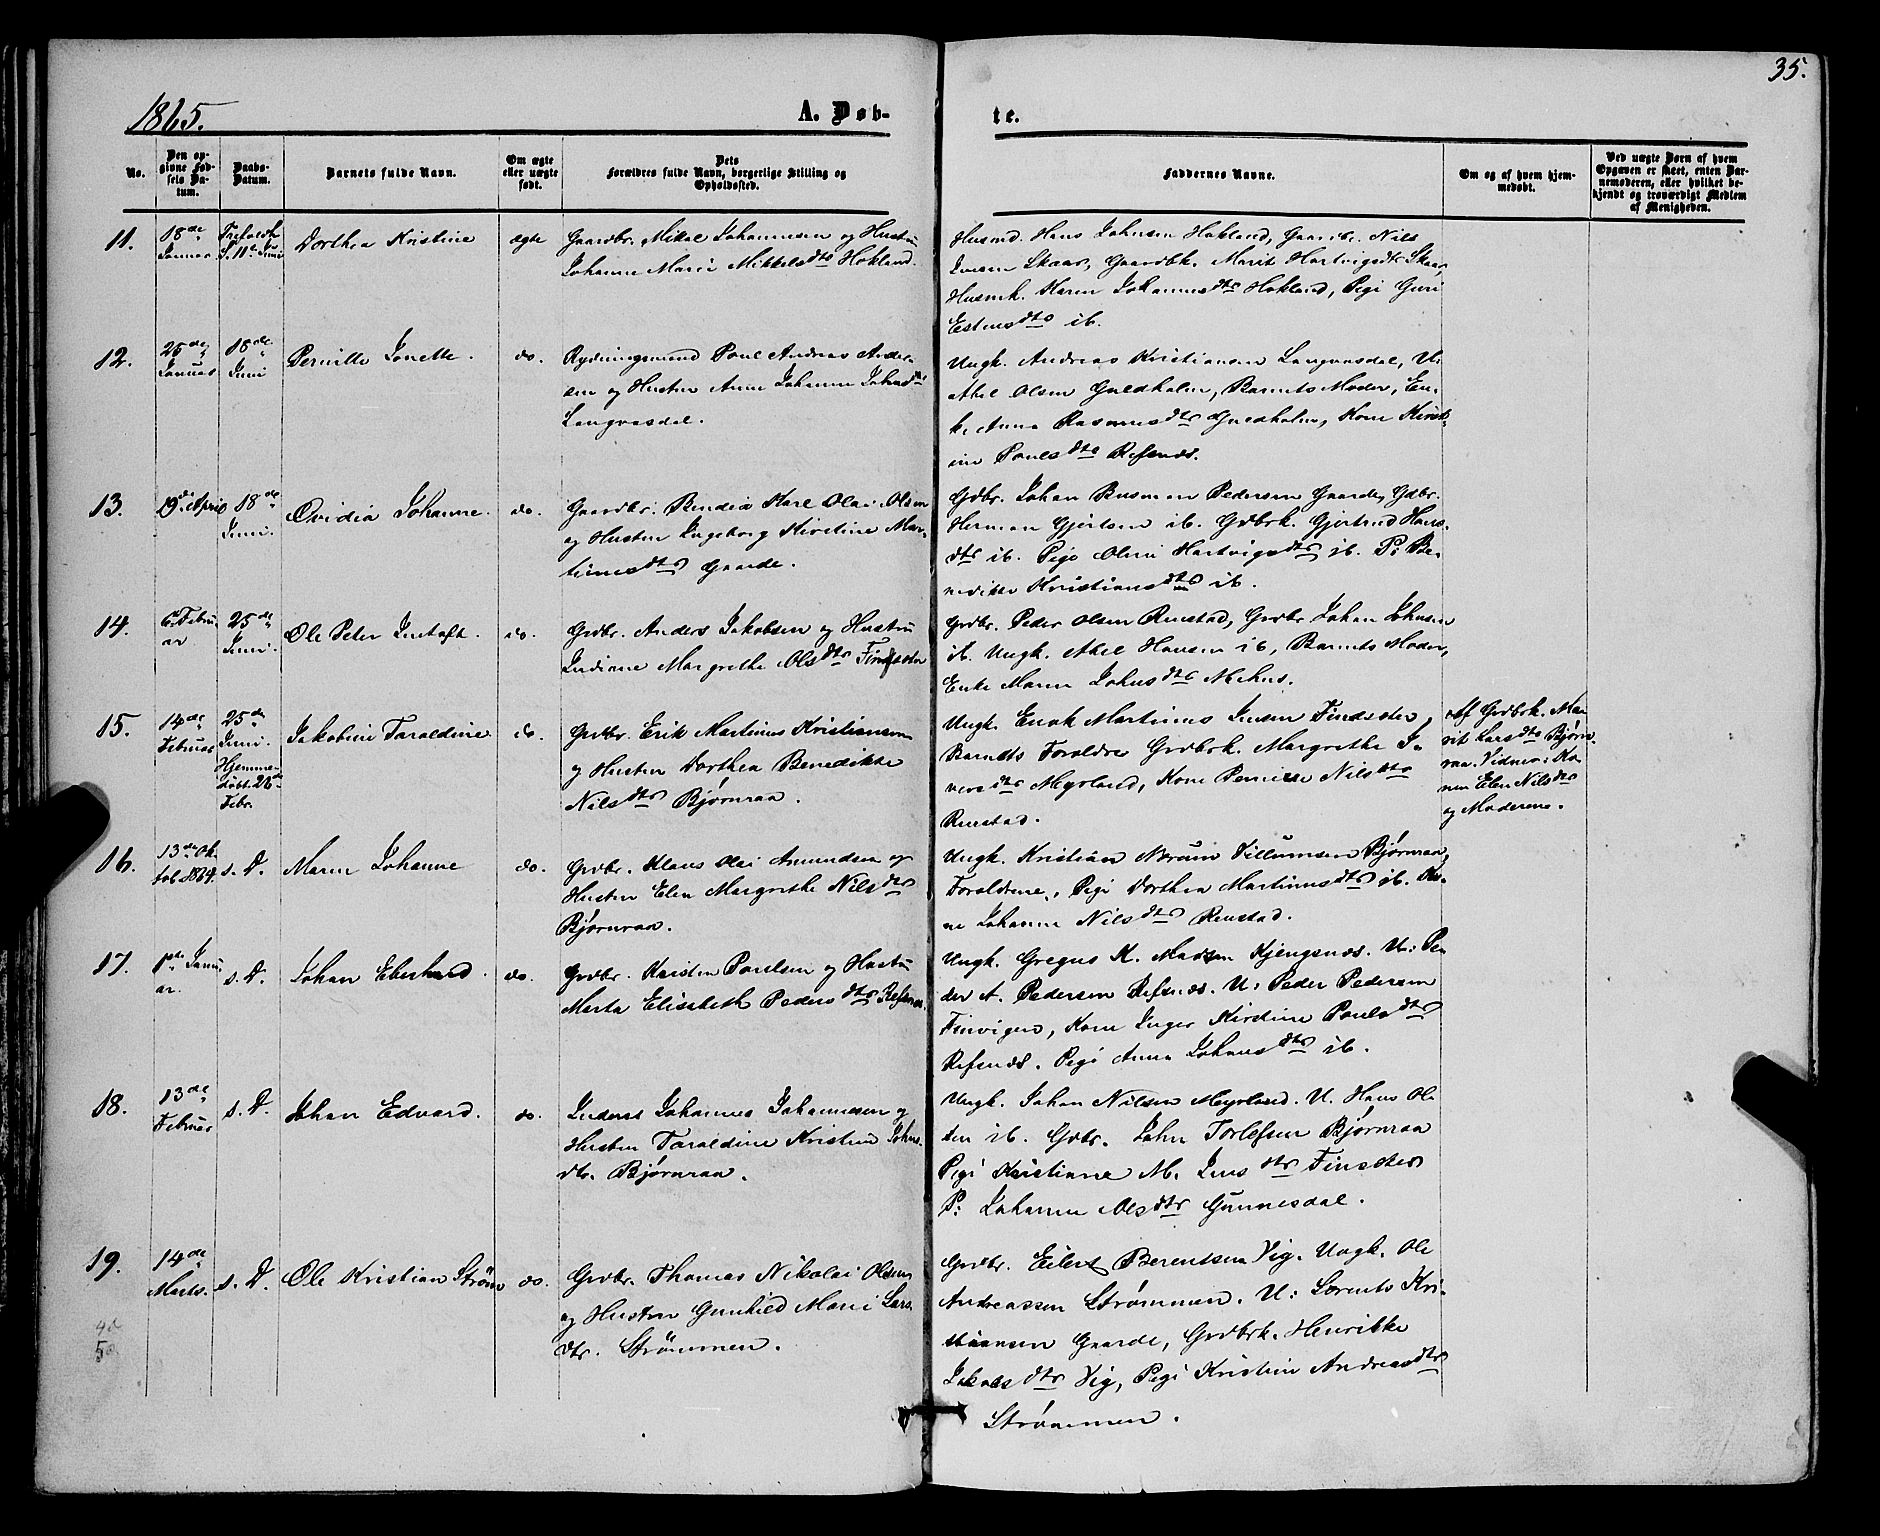 35.
1865.
A. Døb-
te.
No.
Den op-
givne Fød-
sels Da-
tum.
Daabs-
Datum.
Barnets fulde Navn.
Om ægte
eller uægte
født.
Dets
Forældres fulde Navn, borgerlige Stilling og
Opholdssted.
Faddernes Navne.
Om og af hvem hjem-
medøbt.
Ved uægte Børn af hvem
Opgaven er skeet, enten Bar-
nemoderen, eller hvilket be-
kjendt og troværdigt Medlem
af Menigheden.
11.
18de
Januar
11te Juni
Dorthea Kristine
ægte
Gaardbr. Mikal Johannesen og Hustru
Johanne Marie Mikkelsdtr Hokland.
Husmd. Hans Johnsen Hokland, Gaardbr. Nils
Jensen Skaar, Gaardbk. Marit Hartvigsdtr Skaar,
Husmk. Karen Johannesdtr Hokland, Pige Guri
Estensdtr ib.
12.
25de
Januar
18de
Juni
Pernille Jonette.
do.
Rydningsmand Poul Andreas Ander-
sen og Hustru Anne Johanna Johnsdtr
Langvasdal.
Ungk. Andreas Kristiansen Langvasdal, U:
Abel Olsen Guldholm, Barnets Moder, En-
ke Anna Rasmusdtr Guldholm, Kone Kirst-
ine Poulsdtr Refsnæs.
13.
19de April
18de
Juni.
Ovidia Johanne.
do.
Gaardbr. Bendix Karl Olai Olsen
og Hustru Ingeborg Kirstine Mar-
tinusdtr Gaarde.
Gdbr. Johan Busman Pedersen Gaarde, Gdbr.
Herman Gjertsen ib. Grdbrk. Gjertrud Hans-
dtr ib. Pige Oline Hartvigsdtr ib. P: Be-
nedikte Kristiansdtr ib.
14.
6te Febru-
ar
25de
Juni.
Ole Peter Jentoft.
do.
Grdbr. Anders Jakobsen og Hustru
Indiane Margrethe Olsdtr Finsæter
Grdbr. Peder Olsen Renstad, Grdbr Johan Johnsen
ib. Ungk. Abel Hansen ib, Barnets Moder,
Enke Maren Johnsdtr Nehus.
15.
14de
Februar
25de
Juni.
Hjemme-
døbt 26de
Febr.
Jakobine Taraldine
do.
Grdbr. Erik Martinus Kristiansen
og Hustru Dorthea Benedikte
Nilsdtr Bjørnraa.
Ungk. Enok Martinus Jensen Findsæter,
Barnets Forældre Grdbrk. Margrethe I-
versdtr Myrland, Kone Pernille Nilsdtr
Renstad.
Af Grdbrk. Ma-
rit Larsdtr Bjørn-
raa. Vidner: Ko-
nen Elen Nilsdtr
og Moderene.
16.
13de Ok-
tob. 1864.
s. D.
Maren Johanne
do.
Grdbr. Klaus Olai Amundsen og
Hustru Elen Margrethe Nilsdtr
Bjørnraa.
Ungk. Kristian Norum Villumsen Bjørnraa,
Forældrene, Pige Dorthea Martinusdtr ib. Ko-
ne Johanna Nilsdtr Renstad.
17.
1ste Janu-
ar.
s. D.
Johan Eberhard.
do.
Grdbr. Karsten Poulsen og Hustru
Marta Elisabeth Pedersdtr Refsnæs.
Ungk. Gregus K. Madsen Kjengsnæs. U: Pe-
der A. Pedersen Refsnæs. U: Peder Pedersen
Finvigen, Kone Inger Kirstine Poulsdtr
Refsnæs. Pige Anna Johansdtr ib.
18.
13de
Februar
s. D.
Johan Edvard.
do.
Inderst Johannes Johannesen og
Hustru Taraldine Kristine Johns-
dtr. Bjørnraa.
Ungk. Johan Nilsen Myrland. U. Hans Ol-
sen ib. Grdbr. John Torlefsen Bjørnraa
Pige Kristiane M. Jensdtr Finsæter
P: Johanna Olsdtr Gunnesdal.
19.
14de
Marts.
s. D.
Ole Kristian Strøm
do.
Grdbr. Thomas Nikolai Olsen
og Hustru Gunhild Marie Lars-
dtr. Strømmen.
Grdbr. Eilert Berentsen Vig. Ungk. Ole
Andreassen Strømmen. U: Lorents Kri-
stiansen Gaarde, Grdbrk. Henrikke
Jakobsdtr Vig, Pige Kristine Andreasdtr
Strømmen.